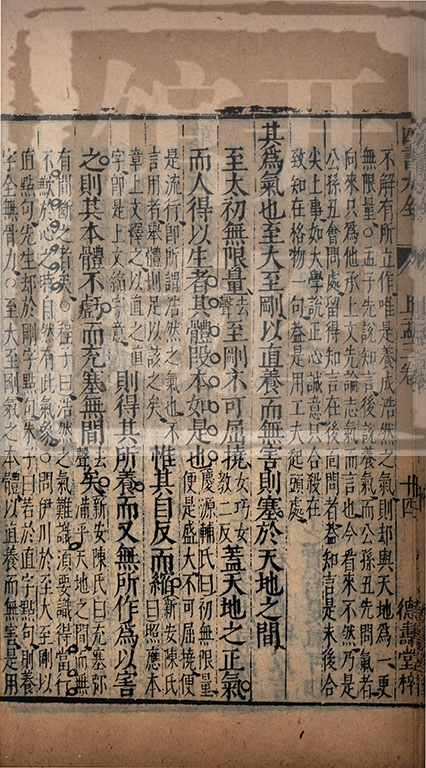 四書大全
上孟卷
廿四
德壽堂梓
不解有所立作唯是養成浩然之氣則却與天地為一更
無限量○孟子先說知言後說養氣而公孫丑先問氣者
向來只為他承上文先論志氣而言也今看來不然乃是
公孫丑會問處留得知言在後面問者蓋知言是末後合
尖上事如大學說正心誠意只合殺在
致知在格物一句蓋是用工夫起頭處
其為氣也至大至剛以直養而無害則塞於天地之間
至太初無限量去聲至剛不可屈撓女巧女教二反蓋天地之正氣
而人得以生者其體段本如是也慶源輔氏曰初無限量便是盛大不可屈撓便
是流行即所謂浩然之氣也不言用者舉體則足以該之矣惟其自反而縮新安陳氏曰照應本
章上文釋之以直之直字即是上文縮字意則得其所養而又無所作為以害
之則其本體不虧而充塞無間去聲矣新安陳氏曰充塞彌滿乎天地之間而無
有間斷之者矣○程子曰浩然之氣難識須要識得當行
不慊於心之時自然有此氣象○問伊川於至大至剛以
直點句先生却於剛字點句朱子曰若於直字點句則養
字全無骨力○至大至剛氣之本體以直養而無害是用